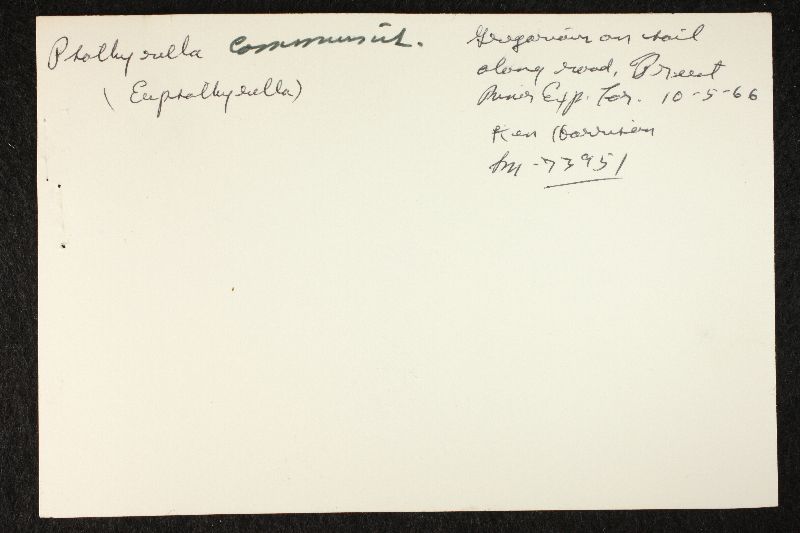 Psathyrella communist.
(Eupsathyrella)
Gregarious on soil
along road, Priest
River Exp. For. 10-5-66
Ken Harrison
Sm-73951